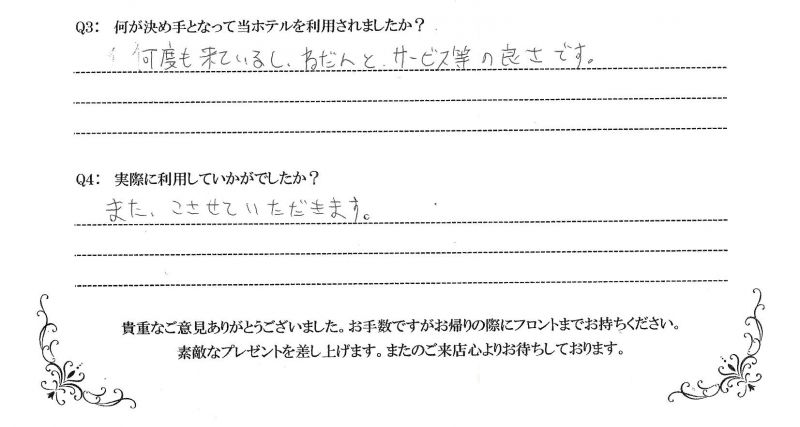 Q3： 何が決め手となって当ホテルを利用されましたか？
何度も来ているし、ねだんと、サービス等の良さです。
Q4： 実際に利用していかがでしたか？
また、こさせていただきます。
貴重なご意見ありがとうございました。お手数ですがお帰りの際にフロントまでお持ちください。
素敵なプレゼントを差し上げます。またのご来店心よりお待ちしております。